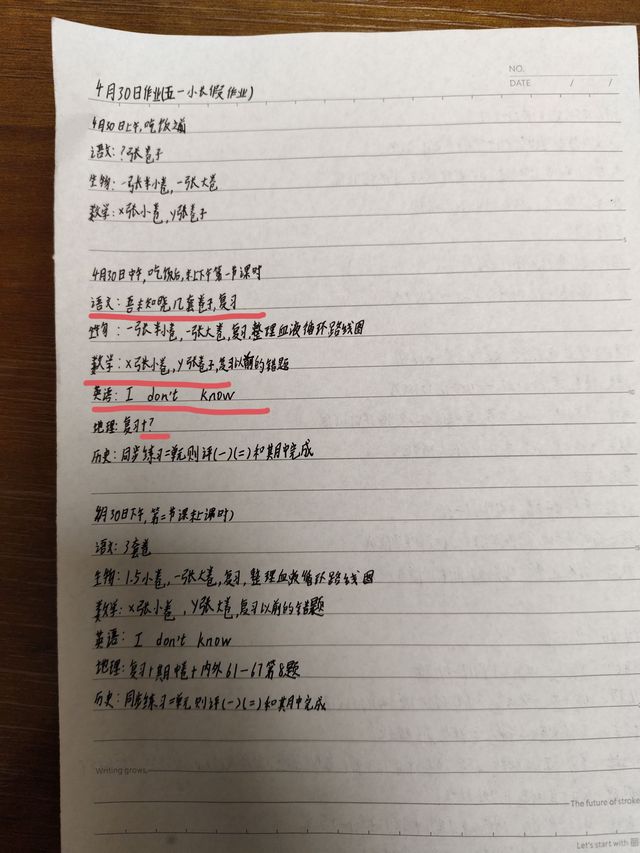 NO.
DATE / /
4月30日作业(五一小长假作业)
4月30日上午,吃饭前
语文:?张卷子
生物:一张半小卷,一张大卷
数学:x张小卷,y张卷子
4月30日中午,吃饭后,未上下午第一节课时
语文:吾未知晓,几套卷子,复习
生物:一张半小卷,一张大卷,复习,整理血液循环路线图
数学:x张小卷,y张卷子,复习以前的错题
英语:I don't know
地理:复习+?
历史:同步练习二单元测评(一)(二)和期中完成
4月30日下午,第二节课未上课时)
语文:3套卷
生物:1.5小卷,一张大卷,复习,整理血液循环路线图
数学:x张小卷,y张大卷,复习以前的错题
英语:I don't know
地理:复习+期中卷+内外61-67第8题
历史:同步练习二单元测评(一)(二)和期中完成
Writing grows
The future of stroke
Let's start with